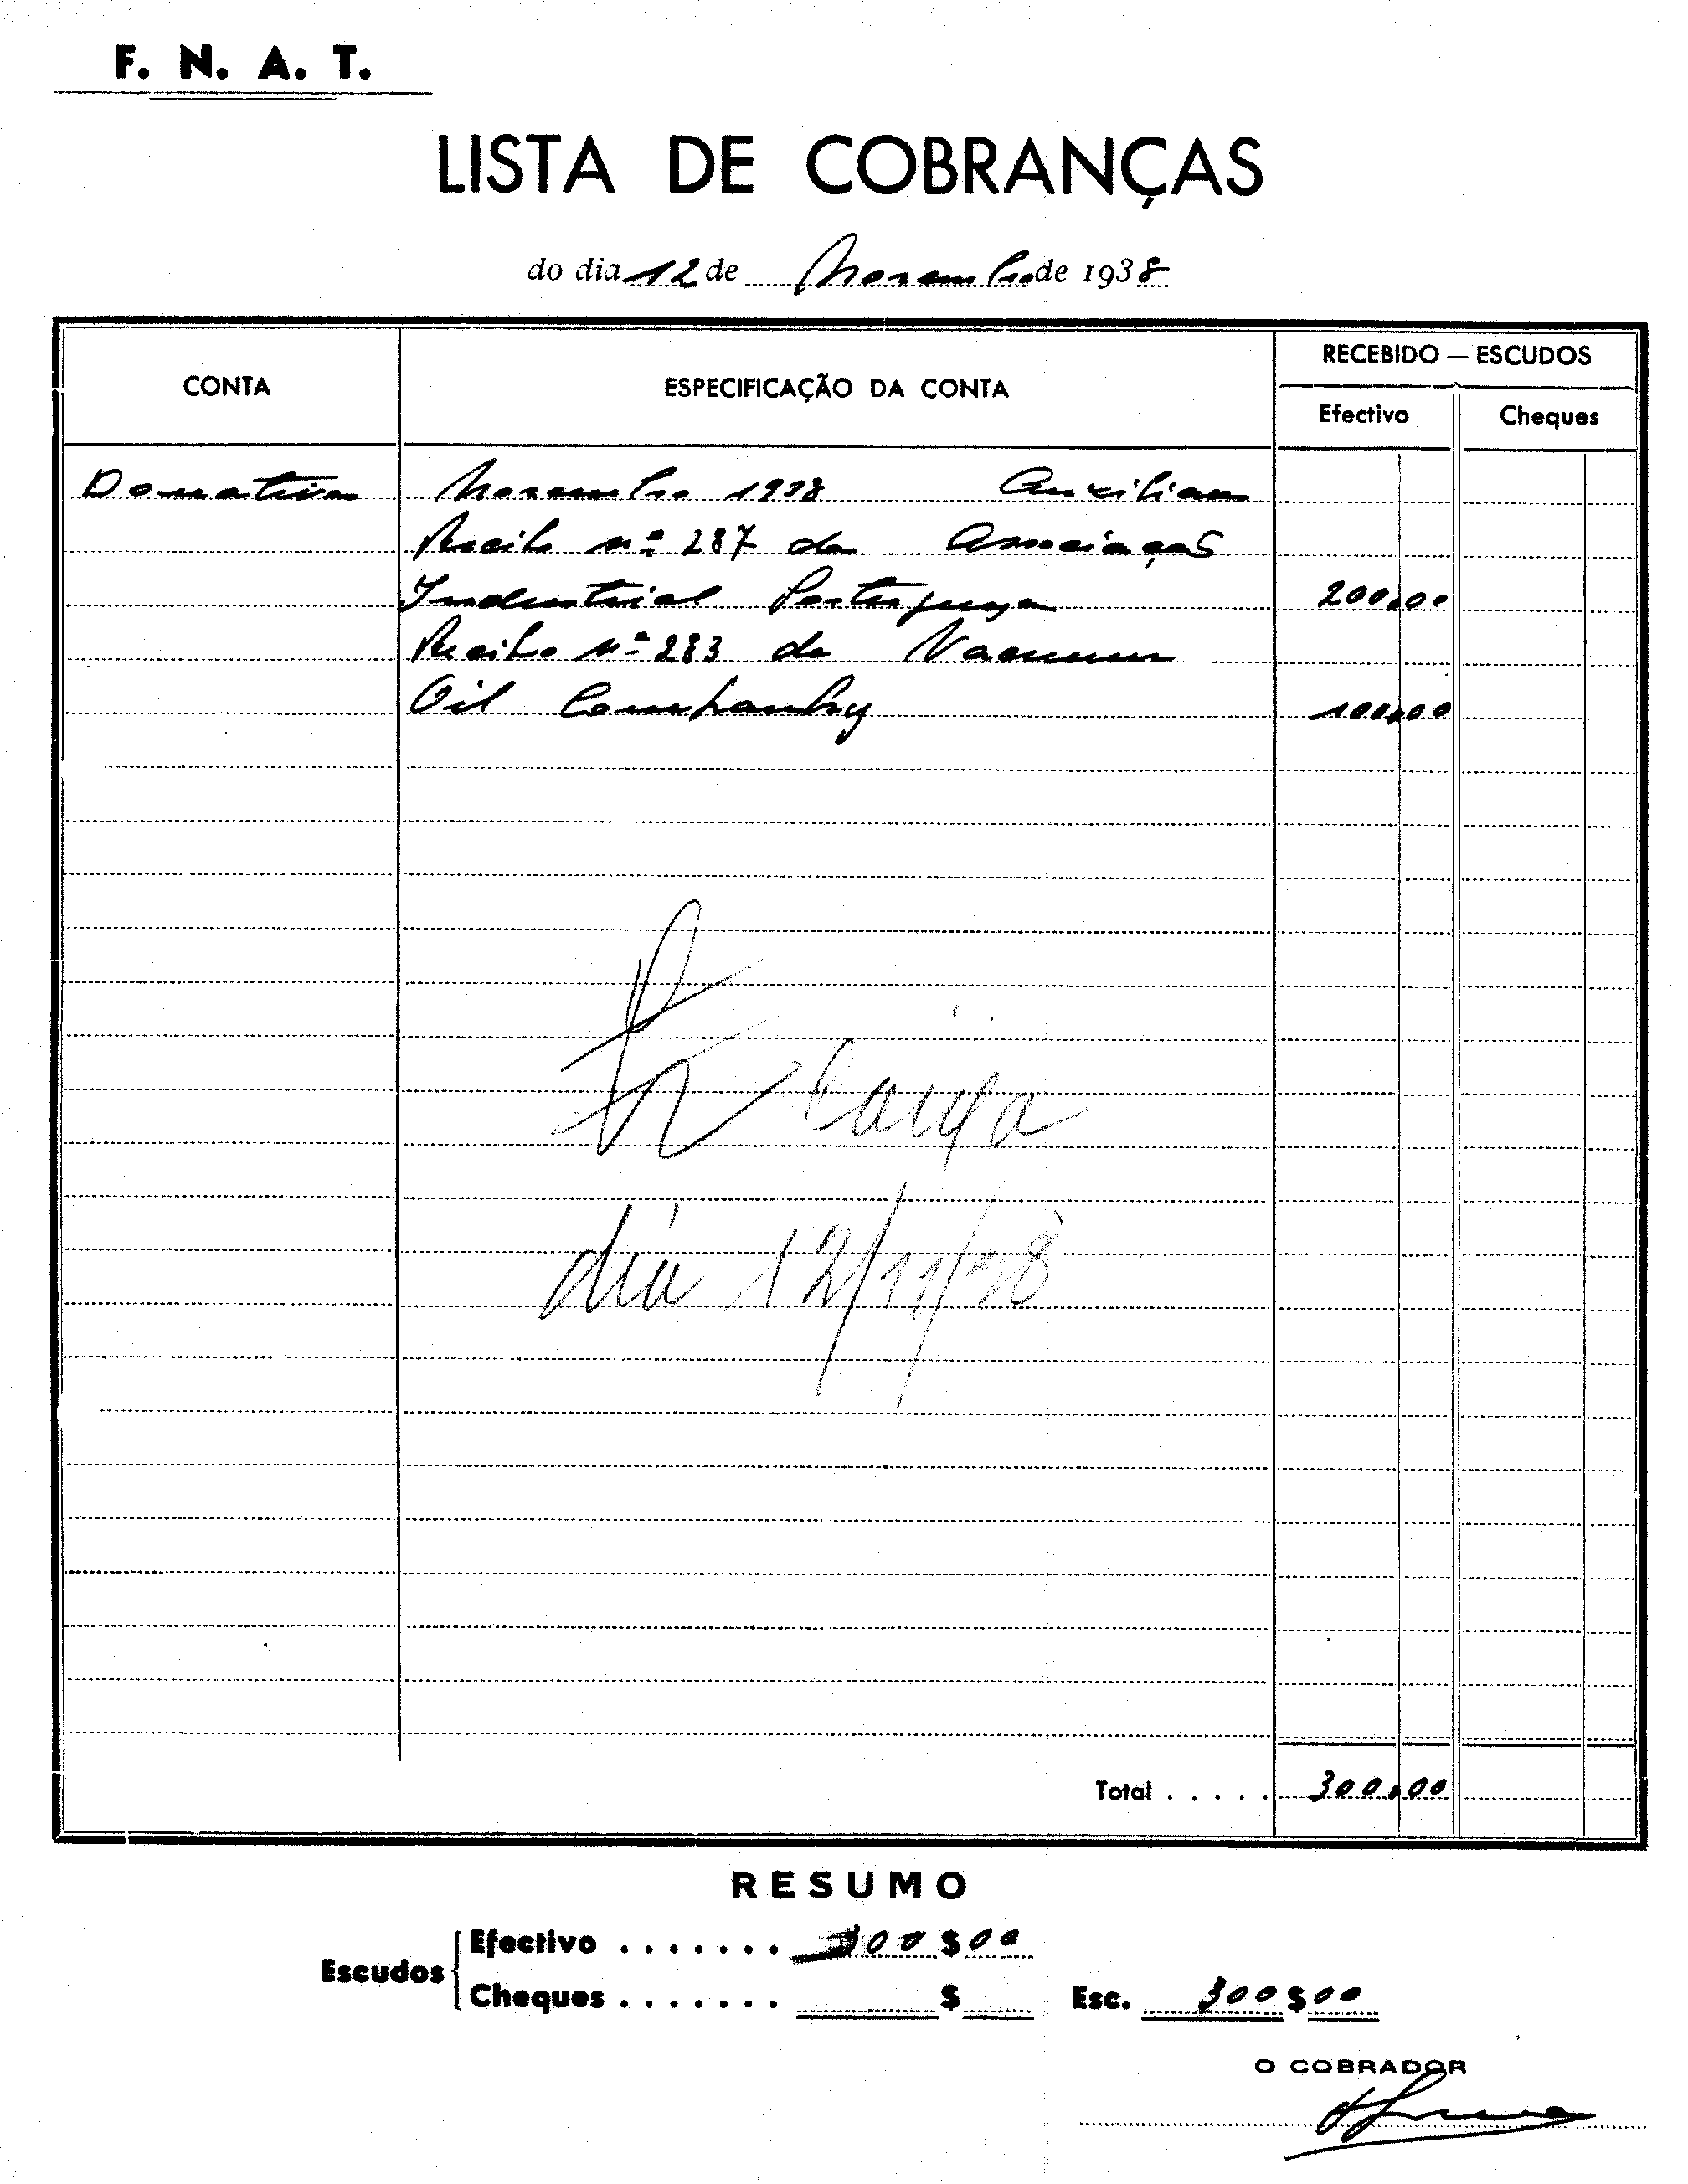 F. N. A. T.
LISTA DE COBRANÇAS
do dia 12 de Novembro de 1938
CONTA ESPECIFICAÇÃO DA CONTA RECEBIDO — ESCUDOS
Efectivo Cheques
Donativos Novembro 1938 Auxiliares
Recibo nº 287 da Associação
Industrial Portuguesa 200,00
Recibo nº 283 da Vacuum
Oil Companhy 100,00
Caixa
dia 12/11/38
Total . . . . . 300,00
RESUMO
Escudos Efectivo . . . . . . . 300$00
Cheques . . . . . . . $ Esc. 300$00
O COBRADOR